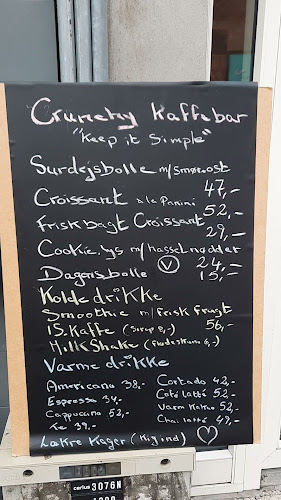 Crunchy Kaffebar
"Keep it simple"
Surdejsbolle m/smør,ost
47,-
Croissant a la Panini
52,-
Friskbagt Croissant
29,-
Cookie, lys m/hasselnødder
24,-
Dagensbolle V 15,-
Kolde drikke
Smoothie m/frisk frugt
IS.Kaffe (Sirup 8,-) 56,-
MilkShake (flødeskum 6,-)
Varme drikke
Americano 38,- Cortado 42,-
Espresso 34,- Café latté 52,-
Cappucino 52,- Varm Kakao 52,-
Te 39,- Chai latté 49,-
Lækre Kager (Kig ind)
certus 3076N